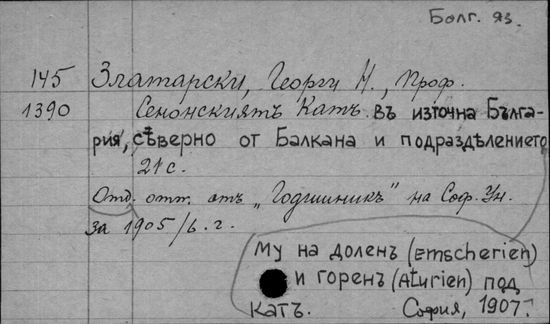 Болг. яз.
145 Златарски, Георги Н., проф.
1390 Сенонскиятъ Катъ въ източна Бълга-
рия, сѣверно от Балкана и подраздѣлението
21 с.
Отд. отп. отъ „Годишникъ" на Соф. Ун.
за 1905/6. г.
му на доленъ (Emscherien)
и горенъ (Aturien) под
катъ. София, 1907.